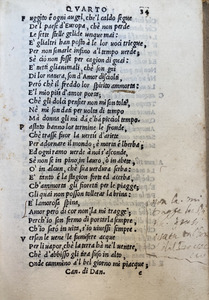 QVARTO
F uggito è ogni augel, che'l caldo segue
Del paese d'Europa, che non perde
Le sette stelle gelide unque mai:
E gli altri han posto à le lor voci triegue,
Per non sonarne insino al tempo verde,
Se ciò non fosse per cagion di guai:
E tutti gli animali, che son gai
Di lor natura, son d'Amor disciolti,
Però che'l freddo lor spirito ammorta:
E'l mio più d'amor porta;
Che gli dolci pensier non mi son tolti,
Ne mi son dati per volta di tempo
Ma donna gli mi dà, c'ha picciol tempo.
P assato hanno lor termine le fronde,
Che trasse fuor la vertù d'ariete
Per adornare il mondo; e morta è l'herba;
Et ogni ramo verde à noi s'asconde,
Se non se in pino, in lauro, o in abete,
O' in alcun, che sua verdura serba:
E tanto è la stagion forte et acerba,
Ch'ammorta gli fioretti per le piagge;
Gli quai non posson tollerar la brina:
E l'amorosa spina
Amor però di cor non la mi tragge;
Perch'io son fermo di portarla sempre,
Ch'io sarò in vita, s'io vivessi sempre.
V ersan le vene la fumifere acque
Per li vapor, che la terra hà ne'l ventre,
Che d'abisso gli tira suso in alto
Onde cammino al bel giorno mi piacque;
Can. di Dan. e